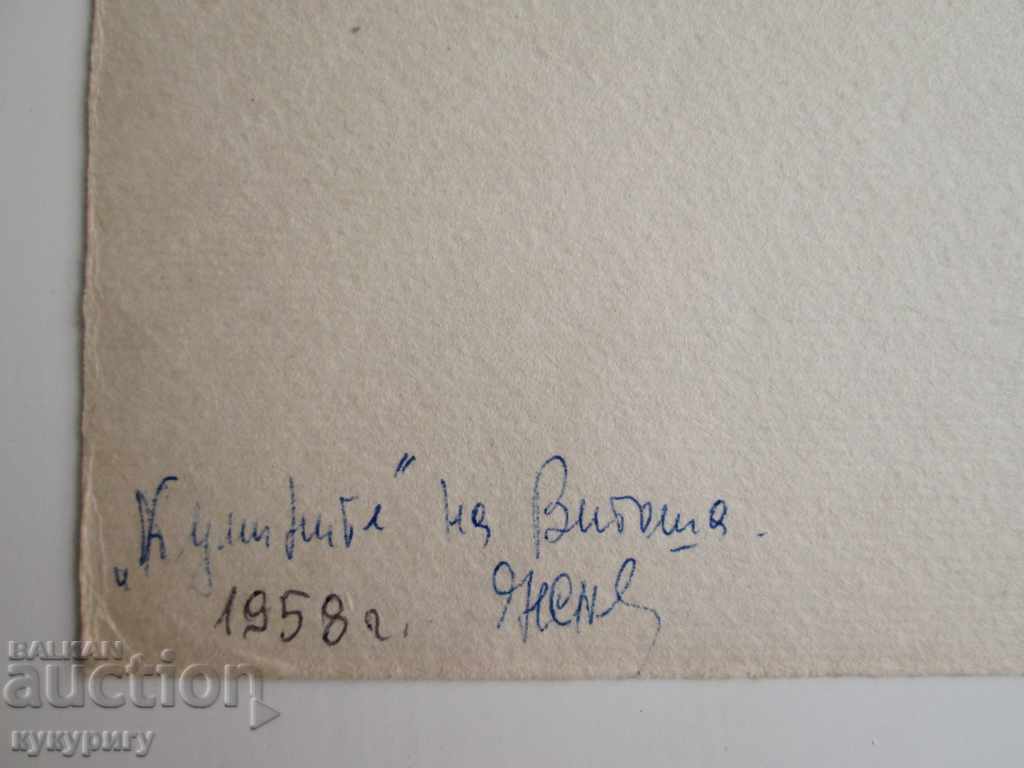 „Купените“ на Витоша.
1958 г.
BALKAN
auction
кукуригу